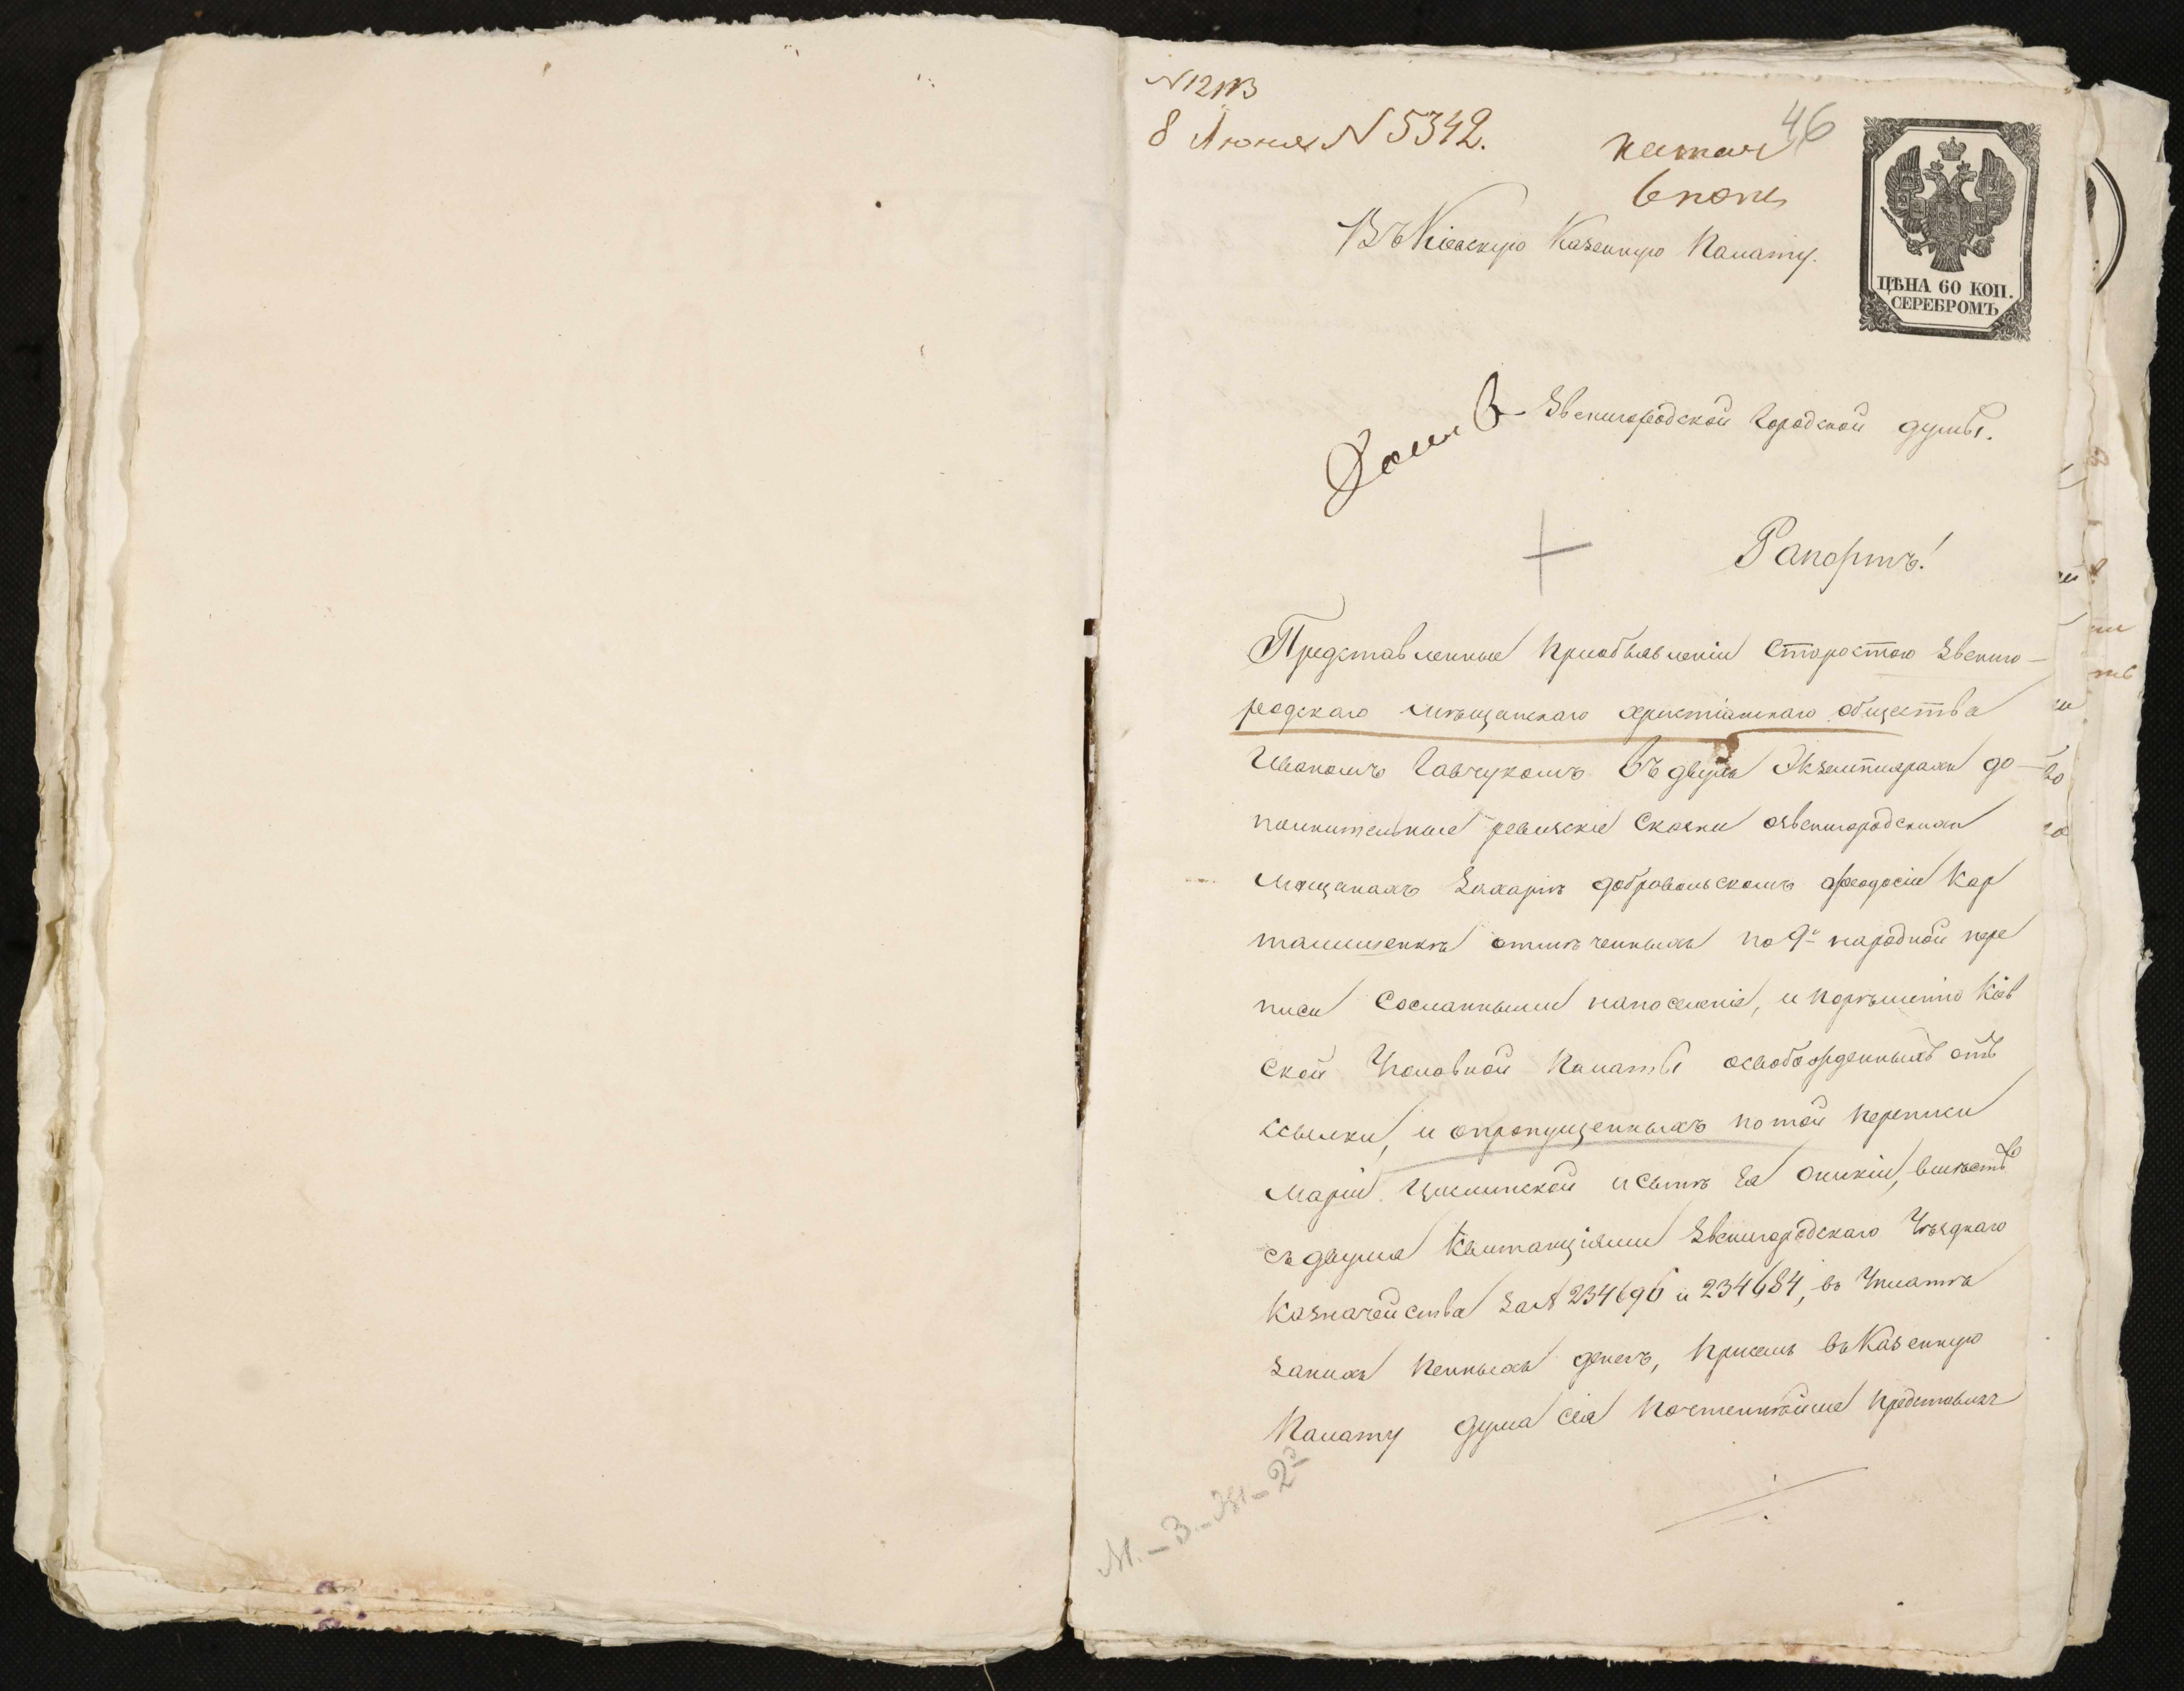 8 Июня N 5342.
46
ЦѢНА 60 КОП.
СЕРЕБРОМЪ
Въ Кіевскую Казенную Палату.
Звенигородской Городской думы.
Рапортъ!
Представленные приобъявленіи Старостою Звениго-
родскаго мѣщанскаго христіанскаго общества
Иваномъ Савчукомъ въ двухъ Экземплярахъ до-
полнительные ревизскіе Сказки озвенигородскихъ
Мещанахъ Захаріѣ добровольскомъ Феодосіи Кар
ташшенкѣ отмѣченныхъ по 9й народной пере
писи Сосланными напоселеніе, и порѣшенію Кіев
ской Уголовной Палаты освобожденныхъ отъ
ссылки, и опропущенныхъ по той переписи
Маріи и сынѣ Ея Оникіи, вмѣстѣ
съ двумя Квитанціями Звенигородскаго Уѣзднаго
Казначейства за N 234690 и 234684, въ Уплатѣ
Занихъ пенныхъ денегъ, присемъ въ Казенную
Палату Дума сія почтеннѣйше представляетъ
М. - 3. - Ж. - 2